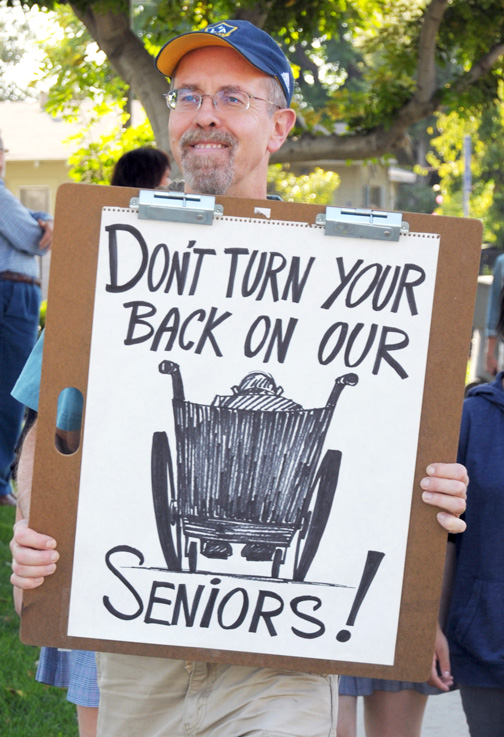 DON'T TURN YOUR
BACK ON OUR
SENiORS!